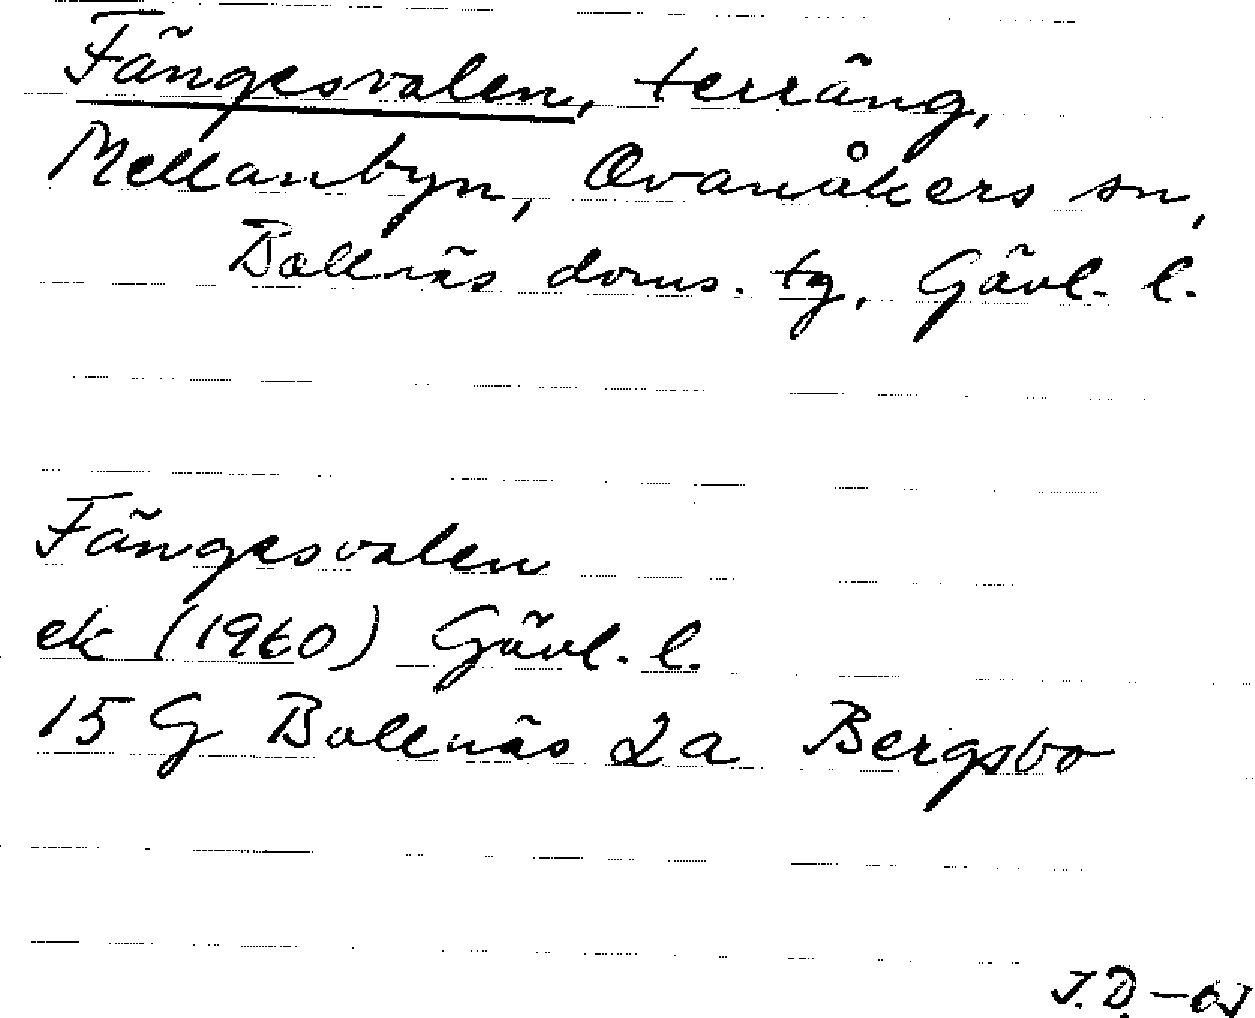 Fängesvalen, terräng,
Mellanbyn, Ovanåkers sn,
Bollnäs doms. tg, Gävl. l.
Fängesvalen
ek (1960) Gävl. l.
15 G Bollnäs 2a Bergsbo
J.D.